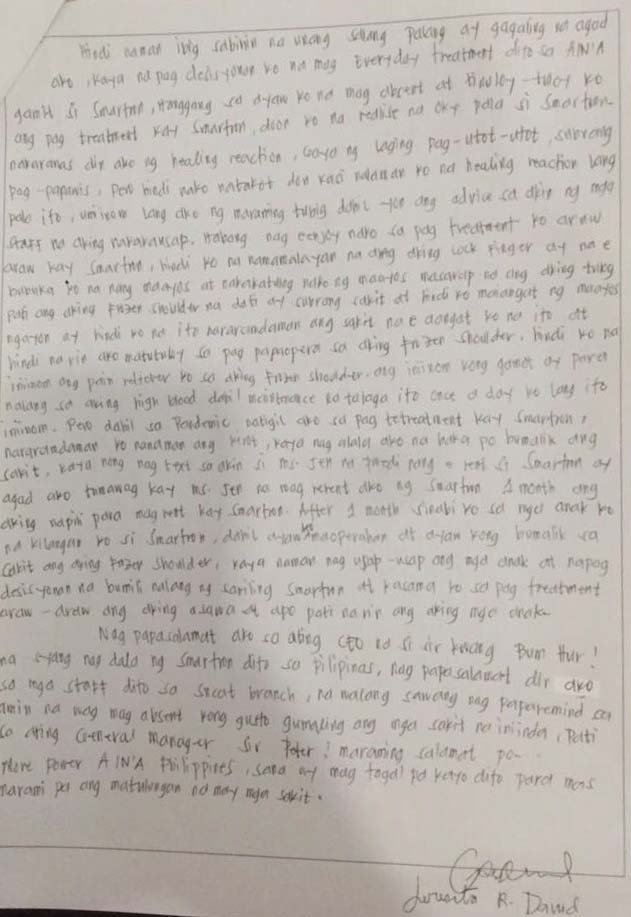 hindi naman ibig sabihin na unang salang palang ay gagaling na agad
ako, kaya na pag decisyonan ko na mag Everyday treatment dito sa AIN'A
gamit si Smartron, Hanggang sa ayaw ko na mag absent at tinuloy-tuloy ko
ang pag treatment kay Smartron, doon ko na realise na oky pala si Smartron.
nakaranas din ako ng healing reaction, Gaya ng laging pag-utot-utot, subrang
pag-papawis, pero hindi nako natakot don kasi nalaman ko na healing reaction lang
pala ito, uminom lang ako ng maraming tubig dahil yon ang advice sa akin ng mga
staff na aking nakakausap. Habang nag eenjoy nako sa pag treatment ko araw
araw kay Smartron, hindi ko na namamalayan na ang aking Lock Finger ay na e
bubuka ko na nang maayos at nakakatulog nako ng maayos masarap na ang aking tulog
pati ang aking Frozen shoulder na dati ay subrang sakit at hindi ko maiangat ng maayos
ngayon ay hindi ko na ito nararamdaman ang sakit na e aangat ko na ito at
hindi na rin ako matutuloy sa pag papaopera sa aking frozen shoulder. hindi ko na
iniinom ang pain reliever ko sa aking frozen shoulder. ang iniinom kong gamot ay para
nalang sa aking high blood dahil maintenance na talaga ito once a day ko lang ito
iniinom. Pero dahil sa Pandemic natigil ako sa pag tetreatment kay Smartron,
nararamdaman ko nanaman ang kirot, kaya nag alala ako na baka po bumalik ang
sakit, kaya nong nag text sa akin si ms. Jen na pwedi nang e rent si Smartron ay
agad ako tumawag kay ms. Jen na mag rerent ako ng Smartron 1 month ang
aking napili para mag rent kay Smartron. After 1 month sinabi ko sa mga anak ko
na kilangan ko si Smartron, dahil ayaw ko maoperahan at ayaw kong bumalik sa
sakit ang aking frozen shoulder, kaya naman nag usap-usap ang mga anak at napag
desisyonan na bumili nalang ng sariling Smartron at kasama ko sa pag treatment
araw-araw ang aking asawa at apo pati na rin ang aking mga anak
Nag papasalamat ako sa ating CEO na si sir Kwang Bum Hur!
na syang nag dala ng Smartron dito sa pilipinas, nag papasalamat dir ako
sa mga staff dito sa Sucat branch, na walang sawang nag paparemind sa
amin na wag mag absent kong gusto gumaling ang mga sakit na iniinda, Pati
sa ating General Manager Sir Peter! maraming salamat po-
More power AIN'A Philippines, sana ay mag tagal pa kayo dito para mas
marami pa ang matulungan na may mga sakit.
R. David